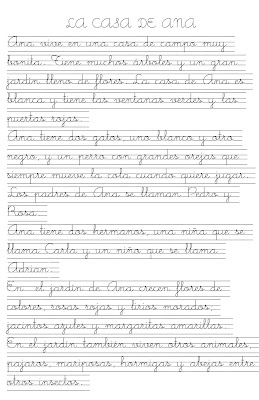 LA CASA DE ANA
Ana vive en una casa de campo muy
bonita. Tiene muchos árboles y un gran
jardín lleno de flores. La casa de Ana es
blanca y tiene las ventanas verdes y las
puertas rojas.
Ana tiene dos gatos, uno blanco y otro
negro, y un perro con grandes orejas que
siempre mueve la cola cuando quiere jugar.
Los padres de Ana se llaman Pedro y
Rosa.
Ana tiene dos hermanos, una niña que se
llama Carla y un niño que se llama
Adrian.
En el jardín de Ana crecen flores de
colores, rosas rojas y lirios morados,
jacintos azules y margaritas amarillas.
En el jardín también viven otros animales,
pajaros, mariposas, hormigas y abejas entre
otros insectos.